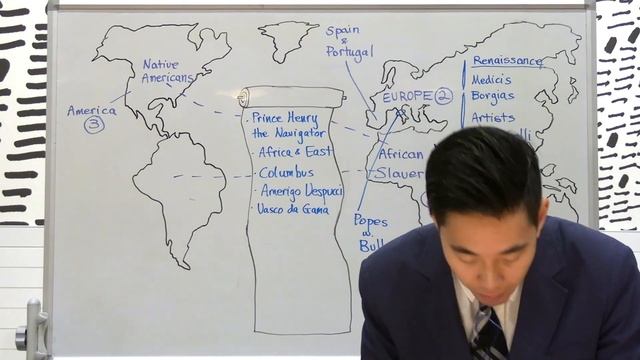 Native
Americans
America
3
Spain
&
Portugal
Prince Henry
the Navigator
Africa & East
Columbus
Amerigo Despucci
Vasco da Gama
EUROPE 2
African
Slavery
Popes
w.
Bull
Renaissance
Medicis
Borgias
Artists